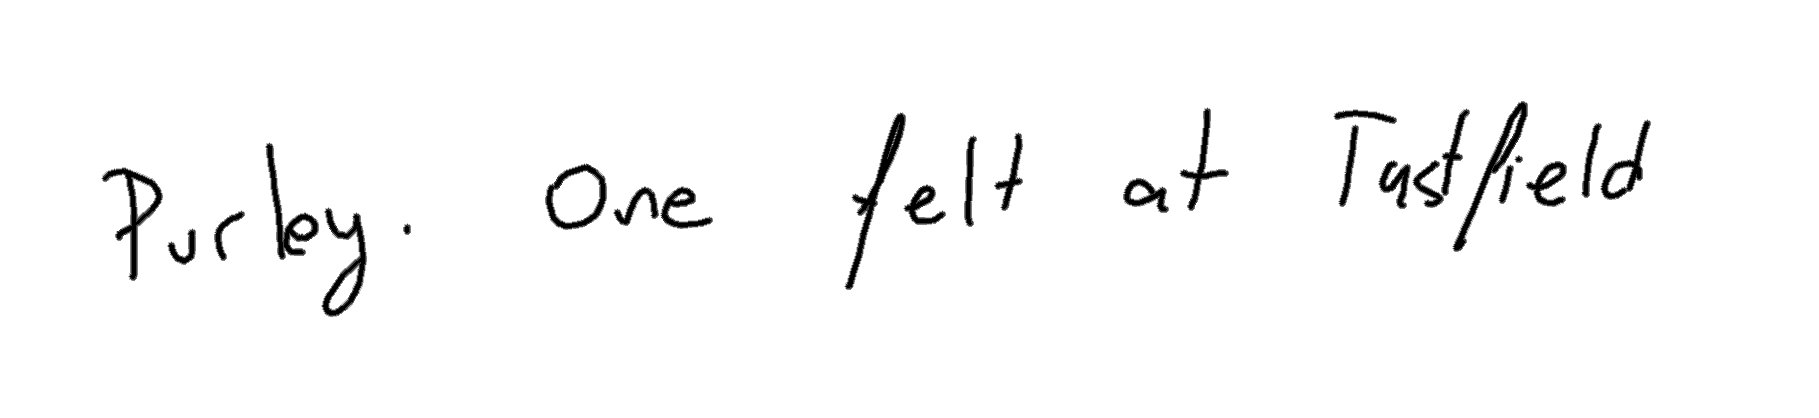 Purley. One felt at Tastfield